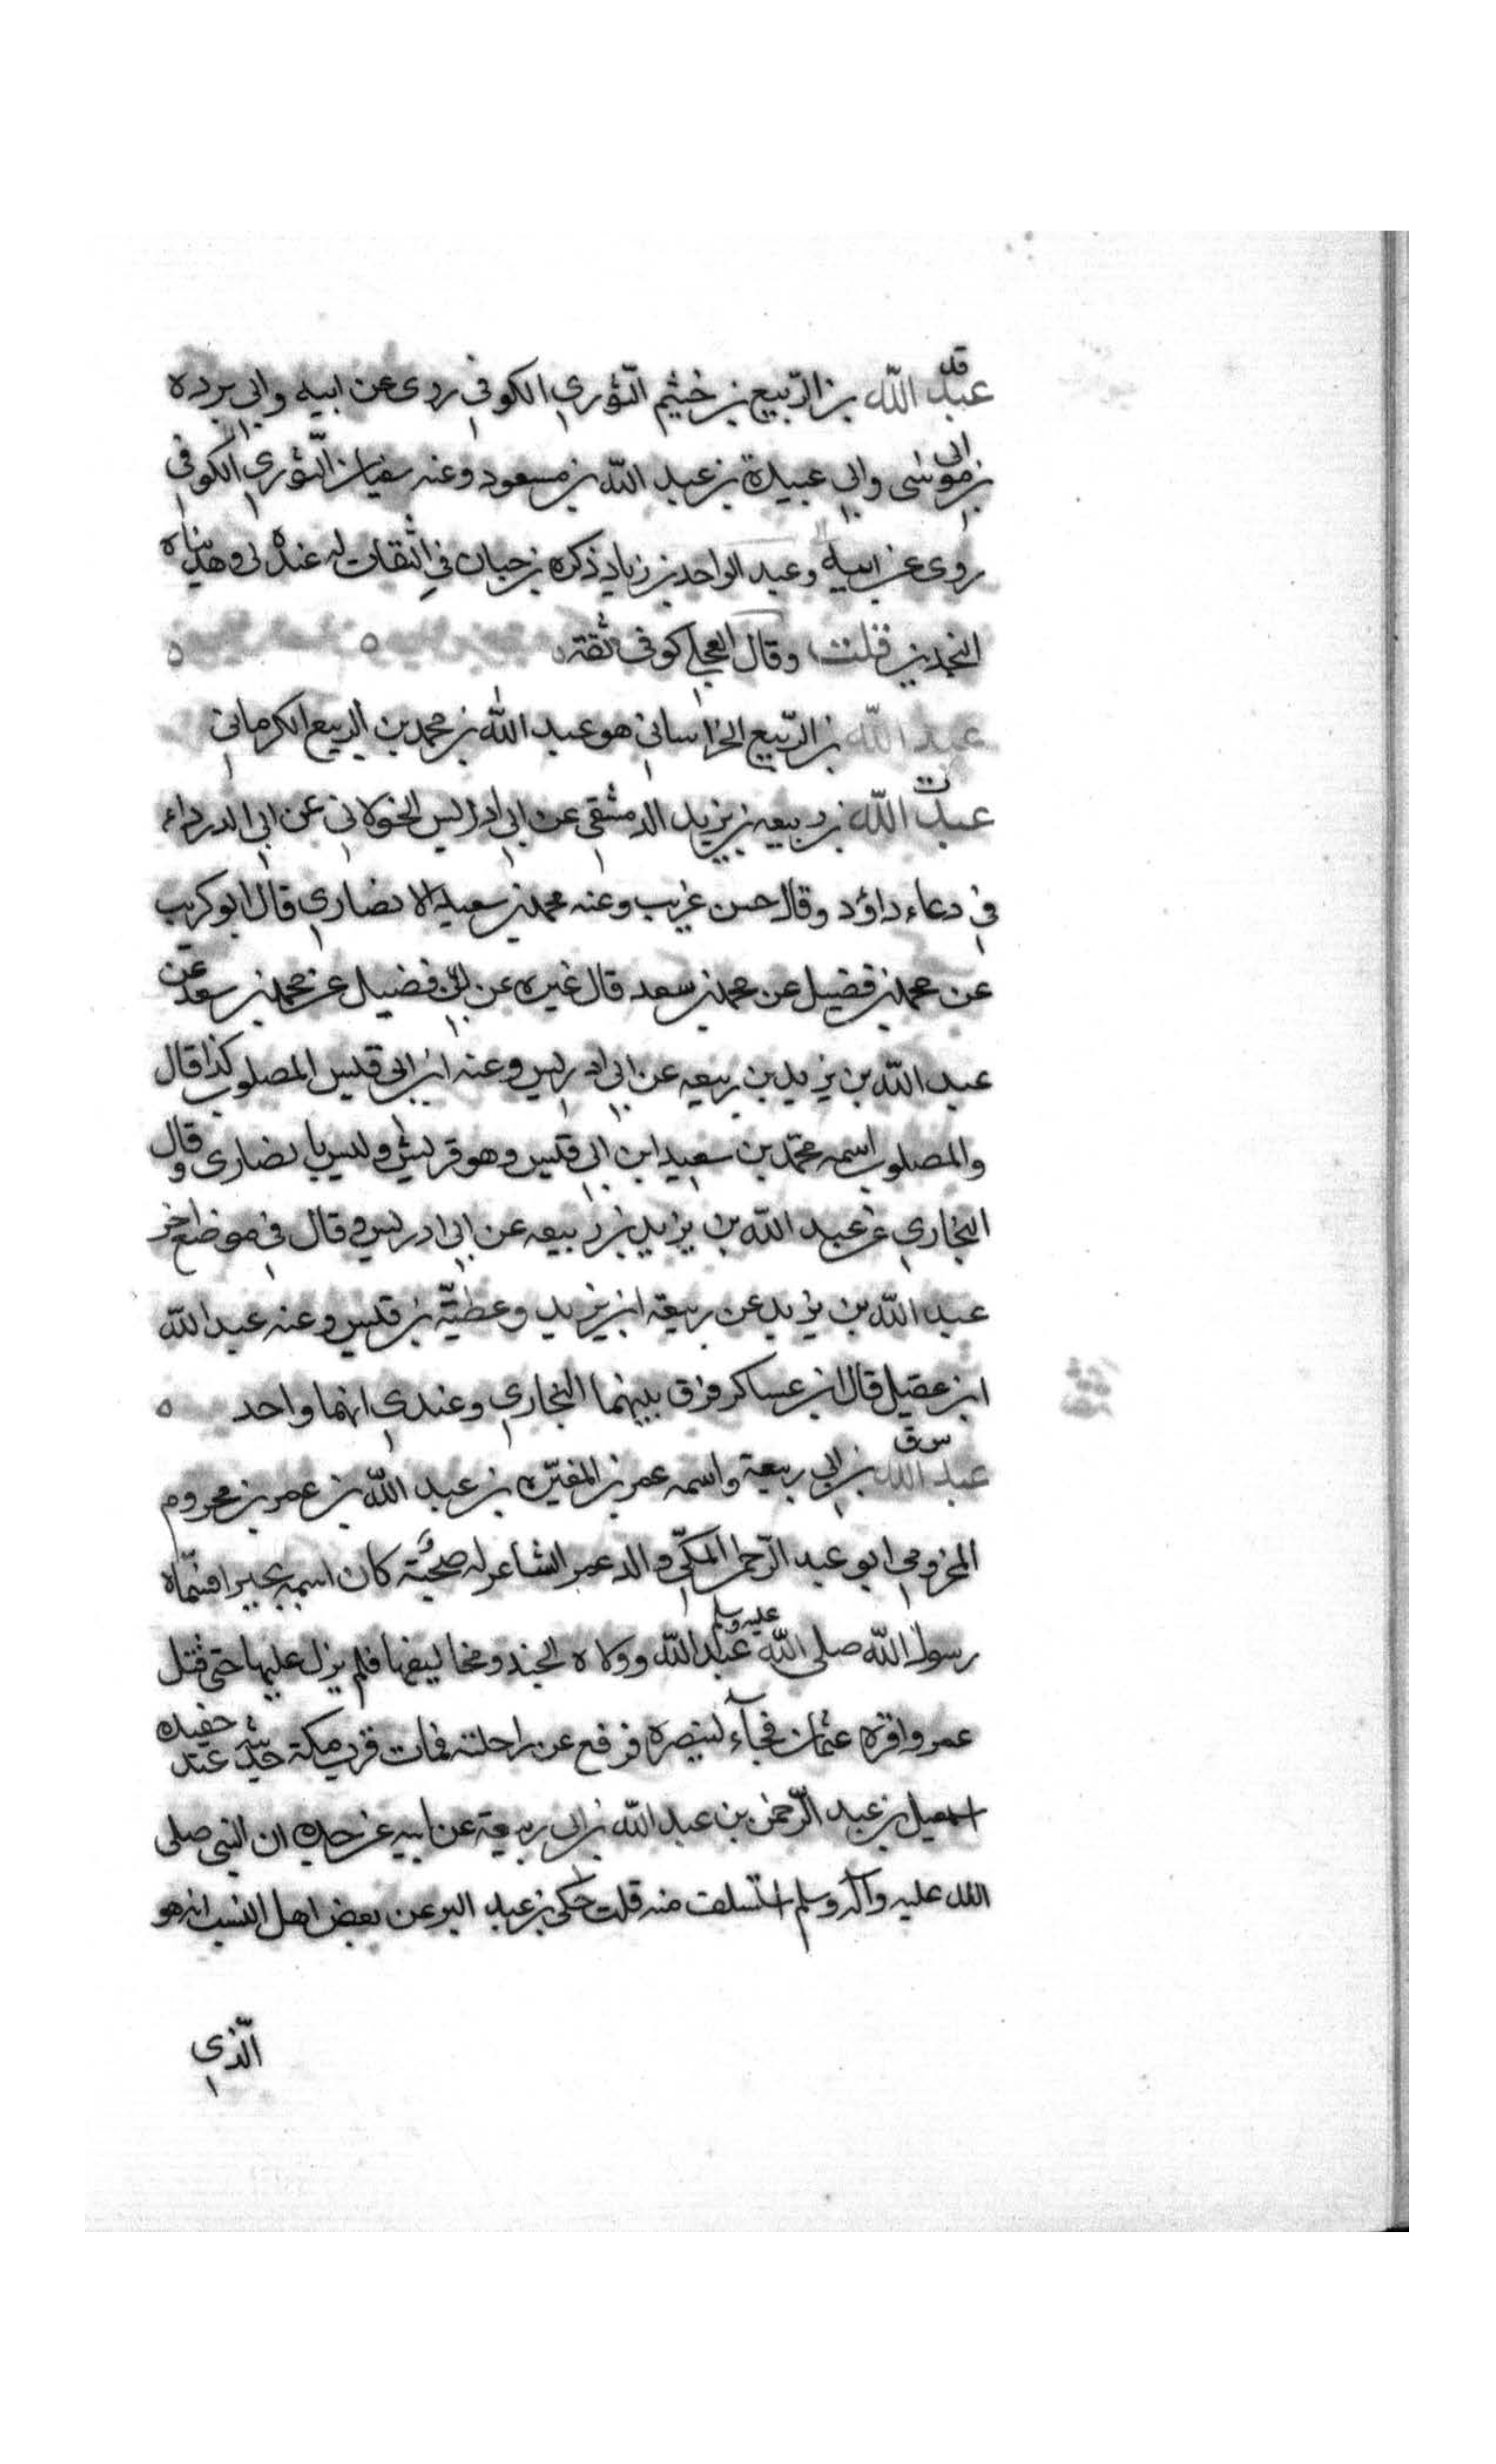 قد
عبد الله بن الربيع بن خثيم الثوري الكوفي روى عن ابيه وابي برده
بن ابي موسى وابي عبيدة بن عبد الله بن مسعود وعنه سفيان الثوري الكوفي
روى عن ابيه وعبد الواحد بن زياد ذكره بن حبان في الثقات له عنده في وهدا
قلت وقال العجلي كوفي ثقة
عبد الله بن الربيع الخراساني هو عبد الله بن محمد بن الربيع الكرماني
ت
عبد الله بن ربيعه بن يزيد الدمشقي عن ابي ادريس الخولاني عن ابي الدرداء
في دعاء داؤد وقال حسن غريب وعنه محمد بن سعيد الانصاري قال ابو كريب
عن محمد بن فضيل عن محمد بن سعد قال غيره عن بن فضيل عن محمد بن سعد عن
عبد الله بن يزيد بن ربيعه عن ابي ادريس وعنه ابن ابي قيس المصلوب كذا قال
والمصلوب اسمه محمد بن سعيد ابن ابي قيس وهو قريشي وليس بانصاري وقال
البخاري عن عبد الله بن يزيد بن ربيعه عن ابي ادريس وقال في موضع اخر
عبد الله بن يزيد عن ربيعة ابن يزيد وعطية بن قيس وعنه عبد الله
ابن عقيل قال ابن عساكر فرق بينهما البخاري وعندي انهما واحد
س ق
عبد الله بن ابي ربيعة واسمه عمر بن المغيره بن عبد الله بن عمر بن مخزوم
المخزومي ابو عبد الرحمن المكي والد عمر الشاعر له صحبة كان اسمه بجيرا فسماه
رسول الله صلى الله عليه وسلم عبد الله وولاه الجند ومخاليفها فلم يزل عليها حتى قتل
عمر واقره عثمان فجآء لينصره فوقع عن راحلته فمات قرب مكة حديثه عند حفيده
اسمعيل بن عبد الرحمن بن عبد الله بن ابي ربيعة عن ابيه عن جده ان النبي صلى
الله عليه وآله وسلم استسلف منه قلت حكى بن عبد البر عن بعض اهل النسب انه هو
الذي